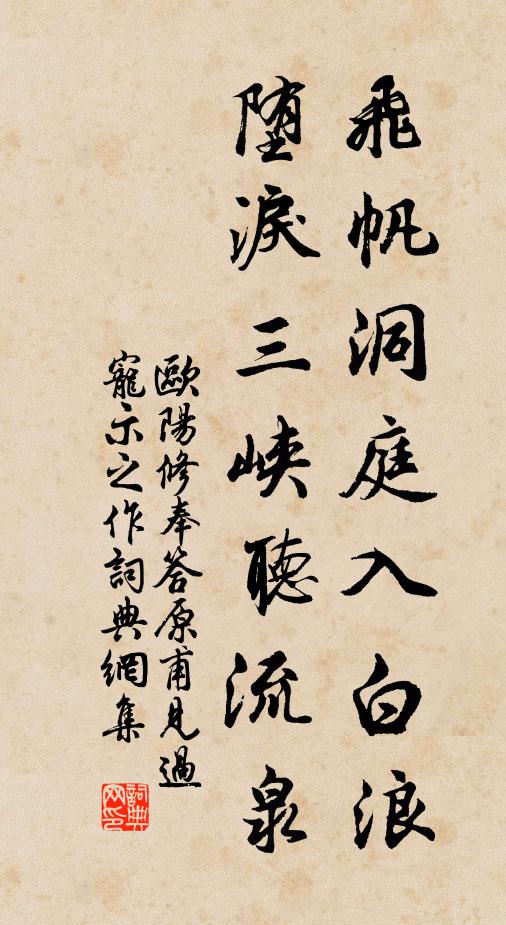 飛帆洞庭入白浪
墮淚三峽聽流泉
歐陽修奉答原甫見過
寵示之作詞典網集
詞典网印